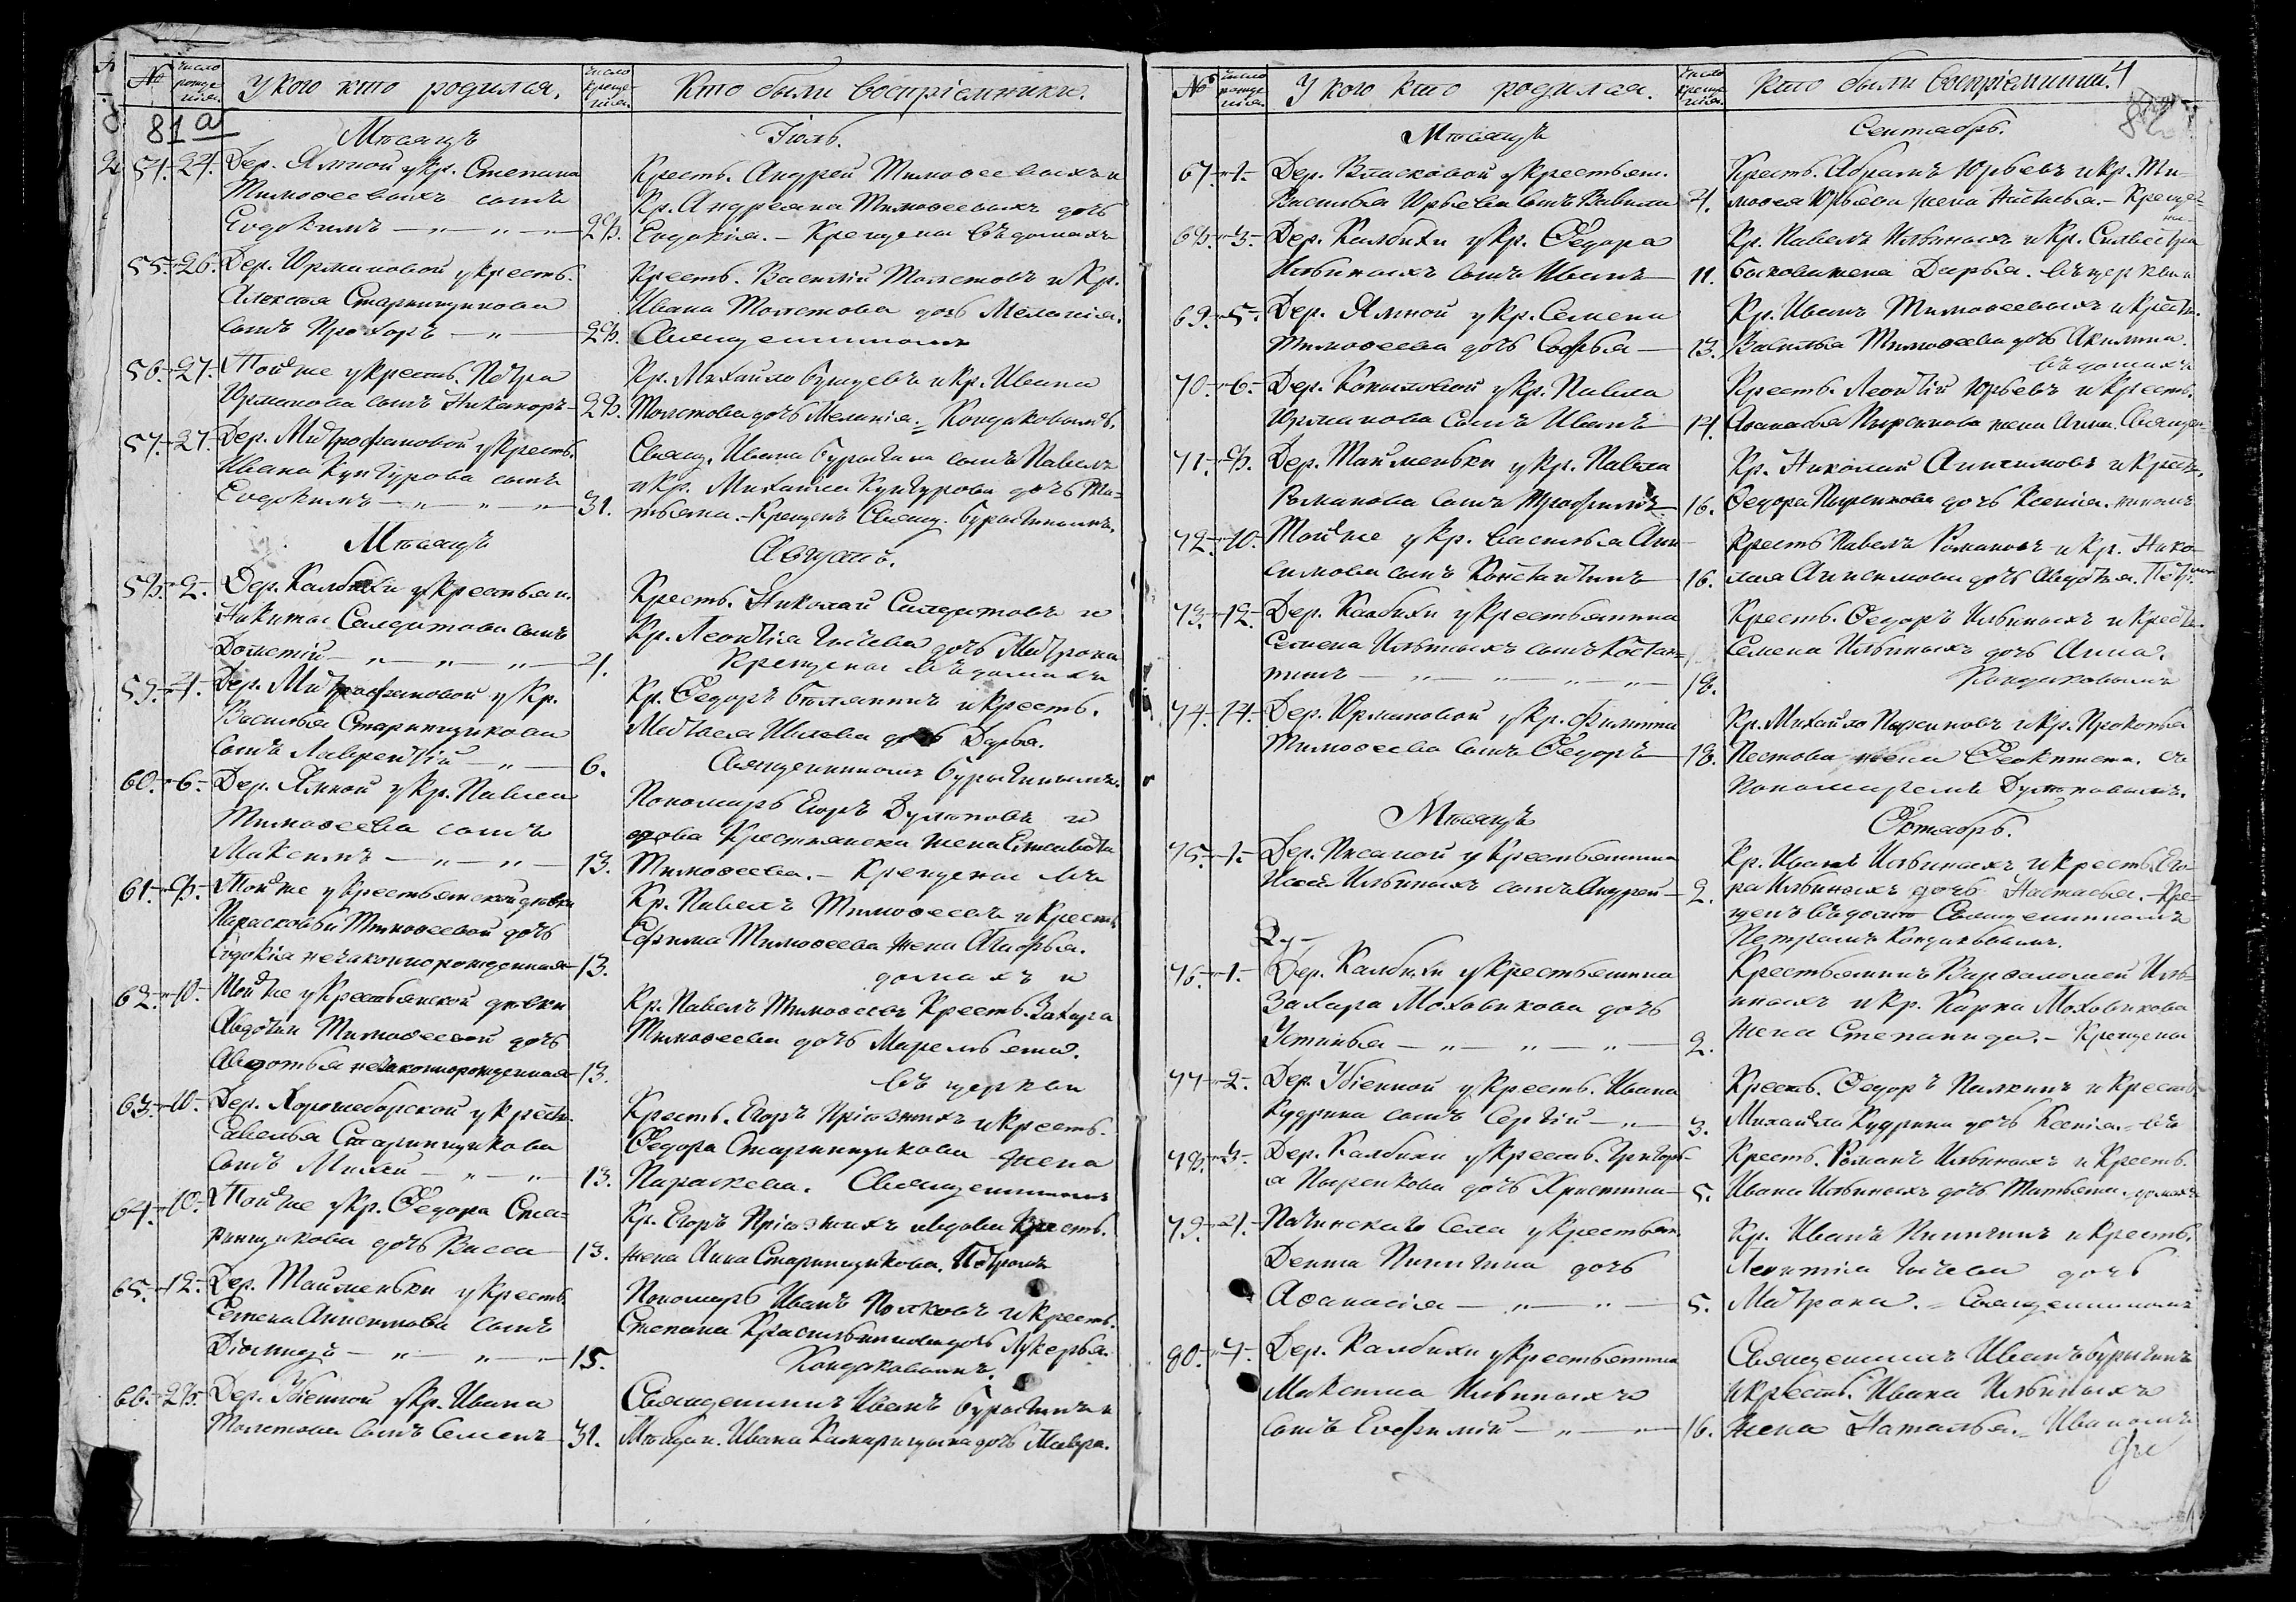 № число рожде нія. У кого кто родился. число креще нія. Кто были воспріемники.
81 а
Мѣсяцъ Іюль.
54. 24. Дер. Ямной у кр. Степана
Тимоѳеевыхъ сынъ
Евдокимъ 28.
Крестьян. Андрей Тимоѳеевыхъ и
Кр. Андреяна Тимоѳеевыхъ дочь
Евдокія. - Крещены въ домахъ
55. 26. Дер. Юрмановой у крестьян.
Алексѣя Старинщикова
сынъ Прохоръ 28.
Крестьян. Василій Толстовъ и Кр.
Ивана Толстова дочь Меланія.
Священникомъ
56. 27. Той же у крестьян. Петра
Юрманова сынъ Никаноръ 28.
Кр. Михайло и Кр. Ивана
Толстова дочь Меланія. Кондаковымъ.
57. 27. Дер. Митрофановой у крестьян.
Ивана Кунгурова сынъ
Евдокимъ 31.
Свящ. Ивана Бурыгина сынъ Павелъ
и кр. Михаила Кунгурова дочь Та-
тьяна. - Крещенъ Свящ. Бурыгинымъ.
Мѣсяцъ Августъ.
58. 2. Дер. Калбихи у крестьян.
Никиты Солдатова сынъ
Дометій 4.
Крестьян. Николай Солдатовъ и
Кр. Леонтія дочь Матрона
Крещены въ домахъ
59. 4. Дер. Митрофановой у Кр.
Василья Старинщикова
сынъ Лаврентій 6.
Кр. Ѳедоръ и крестьян.
дочь Дарья.
Священникомъ Бурыгинымъ.
60. 6. Дер. Ямной у Кр. Павла
Тимоѳеева сынъ
Максимъ 13.
Пономарь Егоръ Дулеповъ и
вдова Крестьянска жена Елисавета
Тимоѳеева. - Крещены въ
61. 8. Той же у крестьянской дѣвки
Парасковьи Тимоѳеевой дочь
Евдокія незаконнорожденная 13.
Кр. Павелъ Тимоѳеевъ и крестьян.
Ефима Тимоѳеева жена Агафья.
домахъ и
62. 10. Той же у Крестьянской дѣвки
Авдотьи Тимоѳеевой дочь
Авдотья незаконнорожденная 13.
Кр. Павелъ Тимоѳеевъ Крестьян. Захара
Тимоѳеева дочь Маремьяна.
въ церкви
63. 10. Дер. Хорошеборской у крестьян.
Савелья Старинщикова
сынъ Михей 13.
Крестьян. Егоръ и крестьян.
Ѳедора Старинщикова жена
Параскева. Священникомъ
64. 10. Той же у Кр. Ѳедора Ста-
ринщикова дочь Васса 13.
Кр. Егоръ и вдова крестьян.
жена Анна Старинщикова. Петромъ
65. 12. Дер. Тайменьки у крестьян.
Семена Анисимова сынъ
Діомидъ 15.
Пономарь Иванъ Поляковъ и крестьян.
Степана Красильникова дочь Лукерья.
Кондаковымъ.
66. 28. Дер. Убіенной у Кр. Ивана
Толстова сынъ Семенъ 31.
Священникъ Иванъ Бурыгинъ и
Мѣщан. Ивана дочь Мавра.
№ число рожде нія. У кого кто родился. число креще нія. Кто были воспріемники. 4
Мѣсяцъ Сентябрь.
67. 1. Дер. Власковой у Крестьян.
Василья Юрьева сынъ Вавила 4.
Крестьян. Абрамъ Юрьевъ и Кр. Ти-
моѳея Юрьева жена Настасья. - Креще-
ны
68. 3. Дер. Калбихи у Кр. Ѳедора
Ильиныхъ сынъ Иванъ 11.
Кр. Павелъ Ильиныхъ и Кр. Сильвестра
Быкова жена Дарья. въ церкви и
69. 5. Дер. Ямной у Кр. Семена
Тимоѳеева дочь Софья 13.
Кр. Иванъ Тимоѳеевыхъ и крестьян.
Василья Тимоѳеева дочь Акилина.
въ домахъ
70. 6. Дер. Копыловой у Кр. Павла
Юрманова сынъ Иванъ 14.
Крестьян. Леонтій Юрьевъ и крестьян.
Аѳанасья Пыренкова жена Анна. Священ-
71. 8. Дер. Тайменьки у Кр. Павла
Романова сынъ Трофимъ 16.
Кр. Николай Анисимовъ и крестьян.
Ѳедора Пыренкова дочь Ксенія. никомъ
72. 10. Той же у Кр. Василья Ани-
симова сынъ Константинъ 16.
Крестьян Павелъ Романовъ и Кр. Нико-
лая Анисимова дочь Авдотья. Петромъ
73. 12. Дер. Калбихи у Крестьянина
Семена Ильиныхъ сынъ Костан-
тинъ 18.
Крестьян. Ѳедоръ Ильиныхъ и крестьян.
Семена Ильиныхъ дочь Анна.
Кондаковымъ
74. 14. Дер. Юрмановой у Кр. Филиппа
Тимоѳеева сынъ Ѳедоръ 18.
Кр. Михайло Пыренковъ и Кр. Прокопья
Пестова жена Ѳеоктиста. съ
Пономаремъ Дулеповымъ.
Мѣсяцъ Октябрь.
75. 1. Дер. Писаной у Крестьянина
Исая Ильиныхъ сынъ Андрей 2.
Кр. Иванъ Ильиныхъ и крестьян. Его-
ра Ильиныхъ дочь Настасья. - Кре-
щенъ въ домѣ Священникомъ
Петромъ Кондаковымъ.
76. 1. Дер. Калбихи у Крестьянина
Захара Моховикова дочь
Устинья 2.
Крестьянинъ Варѳаломей Иль-
иныхъ и Кр. Карпа Моховикова
жена Степанида. - Крещены
77. 2. Дер. Убіенной у Крестьян. Ивана
Кудрина сынъ Сергій 3.
Крестьян. Ѳедоръ Палкинъ и крестьян.
Михайла Кудрина дочь Ксенія. въ
78. 3. Дер. Калбихи у Крестьян. Григорь-
я Пыренкова дочь Христина 5.
Крестьян. Романъ Ильиныхъ и Крестьян.
Ивана Ильиныхъ дочь Татьяна. домахъ
79. 4. Пачинскаго Села у Крестьян.
Дениса Пинигина дочь
Аѳанасія 5.
Кр. Иванъ Пинигинъ и крестьян.
Леонтія дочь
Матрона. Священникомъ
80. 7. Дер. Калбихи у Крестьянина
Максима Ильиныхъ
сынъ Евфимій 16.
Священникъ Иванъ Бурыгинъ
и крестьян. Ивана Ильиныхъ
жена Наталья. Иваномъ